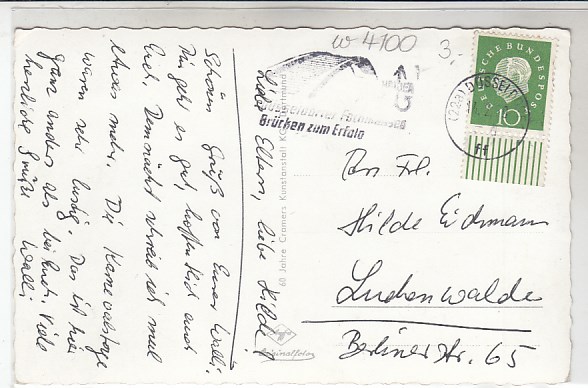 w 4100
3,-
Liebe Eltern, liebe Hilde!
Schönen Gruß von Eurer Walli.
Mir geht es gut, hoffentlich auch
Euch. Demnächst schreib ich mal
etwas mehr. Die Karnevalstage
waren sehr lustig. Das ist hier
ganz anders als bei Euch. Viele
herzliche Grüße Walli
60 Jahre Cramers Kunstanstalt KG, Dortmund
Originalfoto
Düsseldorfer Fachmessen
Brücken zum Erfolg
DÜSSELD
DEUTSCHE BUNDESPOST
10
An Frl.
Hilde Eichmann
Luckenwalde
Berliner Str. 65